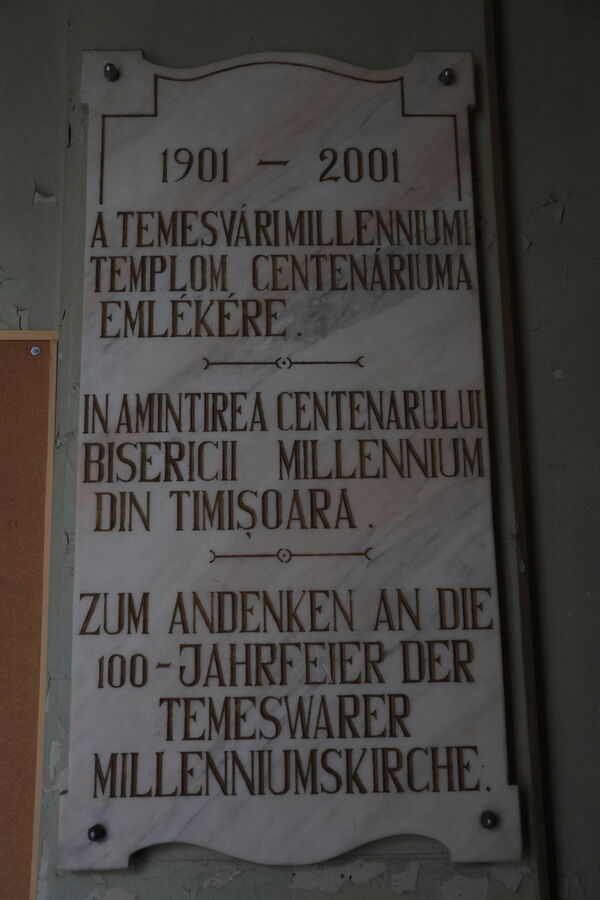 1901 – 2001
A TEMESVÁRI MILLENNIUMI
TEMPLOM CENTENÁRIUMA
EMLÉKÉRE.
IN AMINTIREA CENTENARULUI
BISERICII MILLENNIUM
DIN TIMIȘOARA.
ZUM ANDENKEN AN DIE
100-JAHRFEIER DER
TEMESWARER
MILLENNIUMSKIRCHE.